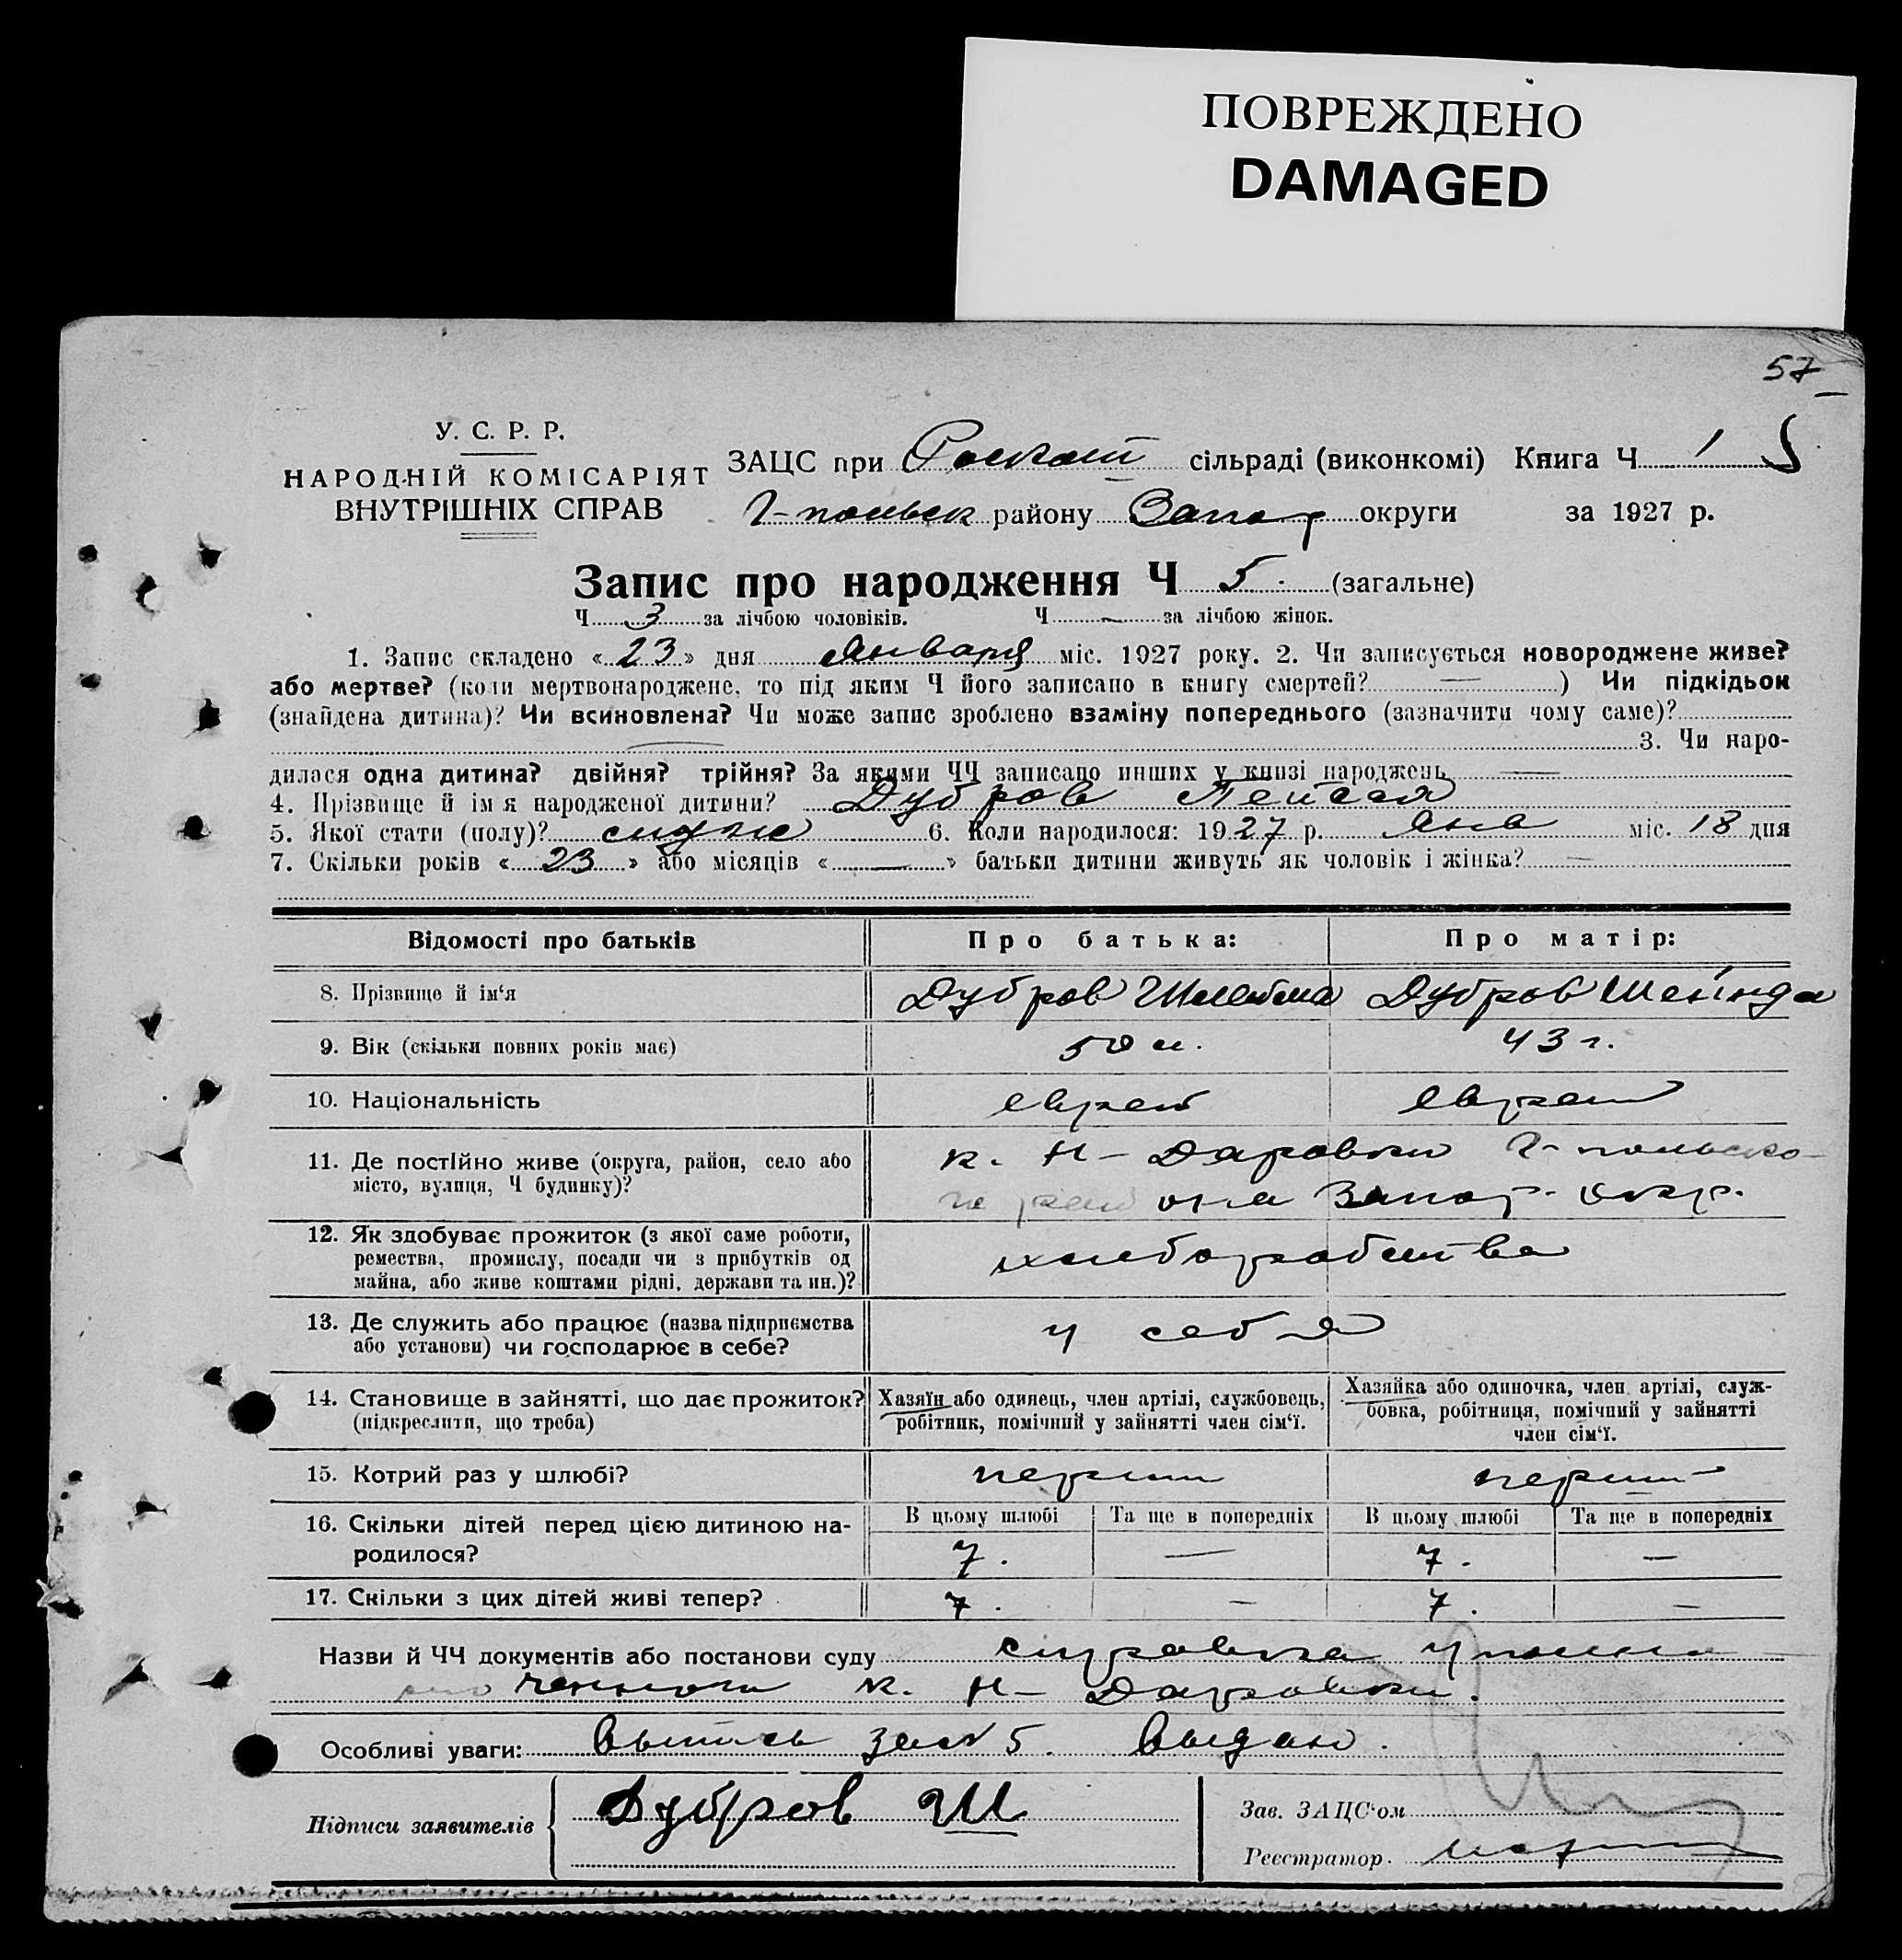 ПОВРЕЖДЕНО
DAMAGED
57
У. С. Р. Р.
НАРОДНІЙ КОМІСАРІЯТ
ВНУТРІШНІХ СПРАВ
ЗАЦС при сільраді (виконкомі) Книга Ч 1 5
Г-польск району Запор округи за 1927 р.
Запис про народження Ч 5. (загальне)
Ч 3 за лічбою чоловіків. Ч — за лічбою жінок.
1. Запис складено « 23 » дня Января міс. 1927 року. 2. Чи записується новороджене живе?
або мертве? (коли мертвонароджене, то під яким Ч його записано в книгу смертей? — ) Чи підкідьок
(знайдена дитина)? Чи всиновлена? Чи може запис зроблено взаміну попереднього (зазначити чому саме)?
— 3. Чи наро-
дилася одна дитина? двійня? трійня? За якими ЧЧ записано инших у книзі народжень —
4. Прізвище й ім я народженої дитини? Дубров Пейсах
5. Якої стати (полу)? 6. Коли народилося: 1927 р. Янв міс. 18 дня
7. Скільки років « 23 » або місяців « — » батьки дитини живуть як чоловік і жінка? —
Відомості про батьків Про батька: Про матір:
8. Прізвище й ім‘я Дубров Шлейма Дубров Шейнда
9. Вік (скільки повних років має) 50 л. 43 г.
10. Національність еврей еврей
11. Де постійно живе (округа, район, село або
місто, вулиця, Ч будинку)?
к. Н-Даровки Г-польско-
го района Запор. окр.
12. Як здобуває прожиток (з якої саме роботи,
ремества, промислу, посади чи з прибутків од
майна, або живе коштами рідні, держави та ин.)?
хлеборобства
13. Де служить або працює (назва підприємства
або установи) чи господарює в себе?
у себя
14. Становище в зайнятті, що дає прожиток?
(підкреслити, що треба)
Хазяїн або одинець, член артілі, службовець,
робітник, помічний у зайнятті член сім‘ї.
Хазяйка або одиночка, член артілі, служ-
бовка, робітниця, помічний у зайнятті
член сім‘ї.
15. Котрий раз у шлюбі? перши перши
16. Скільки дітей перед цією дитиною на-
родилося?
В цьому шлюбі Та ще в попередніх В цьому шлюбі Та ще в попередніх
7. — 7. —
17. Скільки з цих дітей живі тепер? 7. — 7. —
Назви й ЧЧ документів або постанови суду справка уполно-
моченного к. Н-Даровки.
Особливі уваги: Выпись за № 5. Выдано.
Підписи заявителів Дубров Ш
Зав. ЗАЦС‘ом
Реєстратор.